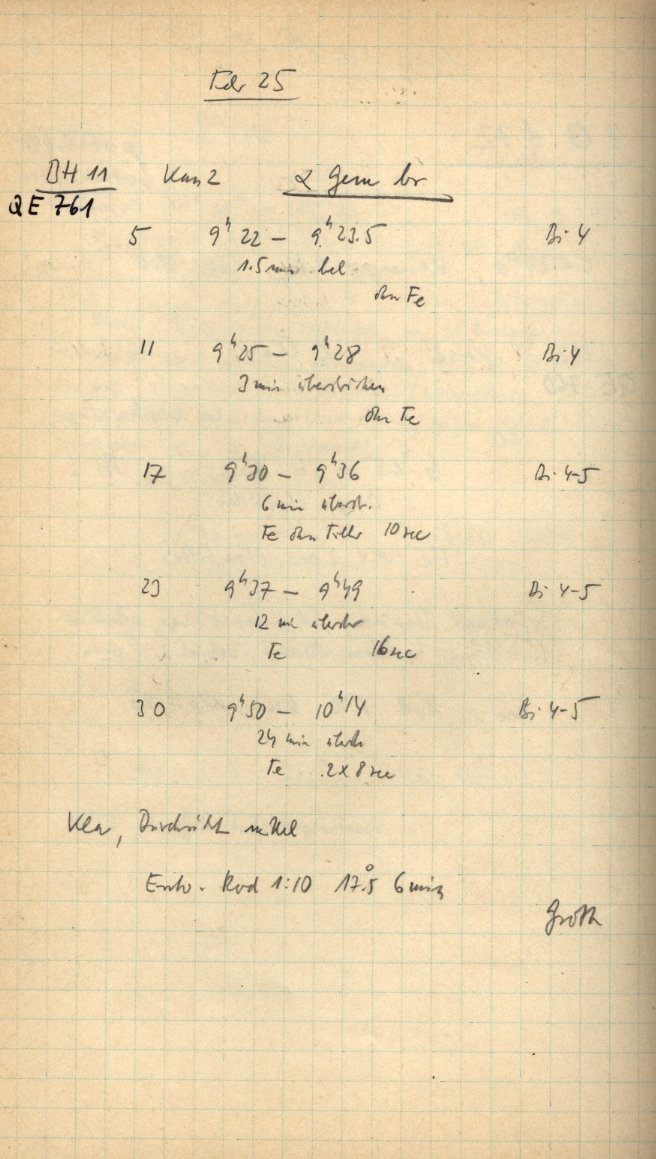 Febr 25
BH 11 Kam 2 α Gem br
QE 761
5 9ʰ22 – 9ʰ23.5 Bi 4
1.5 min bel
ohn Fe
11 9ʰ25 – 9ʰ28 Bi 4
3 min überstrichen
ohn Fe
17 9ʰ30 – 9ʰ36 Bi 4-5
6 min überstr.
Fe ohn Filter 10 sec
23 9ʰ37 – 9ʰ49 Bi 4-5
12 min überstr
Fe 16 sec
30 9ʰ50 – 10ʰ14 Bi 4-5
24 min überstr
Fe 2 x 8 sec
Klar, Durchsicht mittel
Entw. Rod 1:10 17.°5 6 min
Groth